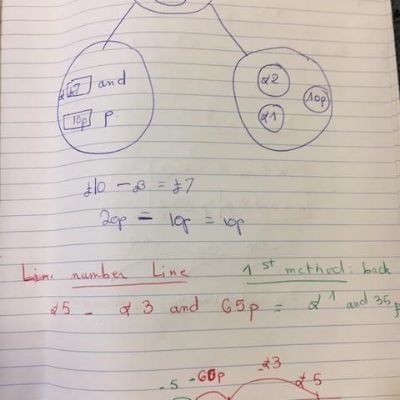 £7 and
10p p
£2
10p
£1
£10 - £3 = £7
20p = 10p = 10p
number Line 1st method: back
£5 - £3 and 65p = £1 and 35p
-5 -60p -£3 £5